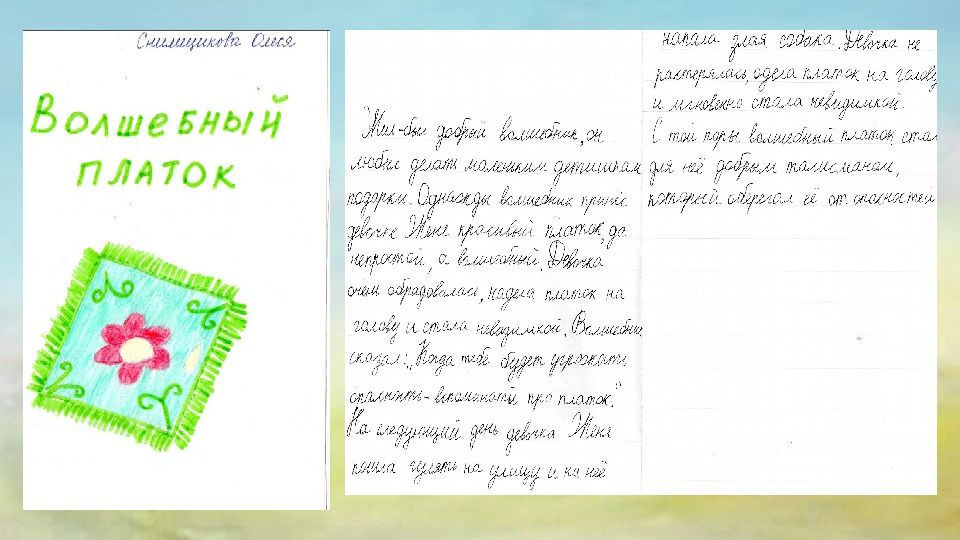 Снимщикова Олеся
ВОЛШЕБНЫЙ
ПЛАТОК
Жил-был добрый волшебник, он
любил делать маленьким детишкам
подарки. Однажды волшебник принёс
девочке Жене красивый платок, да
непростой, а волшебный. Девочка
очень обрадовалась, надела платок на
голову и стала невидимкой. Волшебник
сказал: „Когда тебе будет угрожать
опастность - вспомни ты про платок."
На следующий день девочка Женя
пошла гулять на улицу и на неё
напала злая собака. Девочка не
растерялась, одела платок на голову
и мгновенно стала невидимкой.
С той поры волшебный платок стал
для неё добрым талисманом,
который оберегал её от опасностей